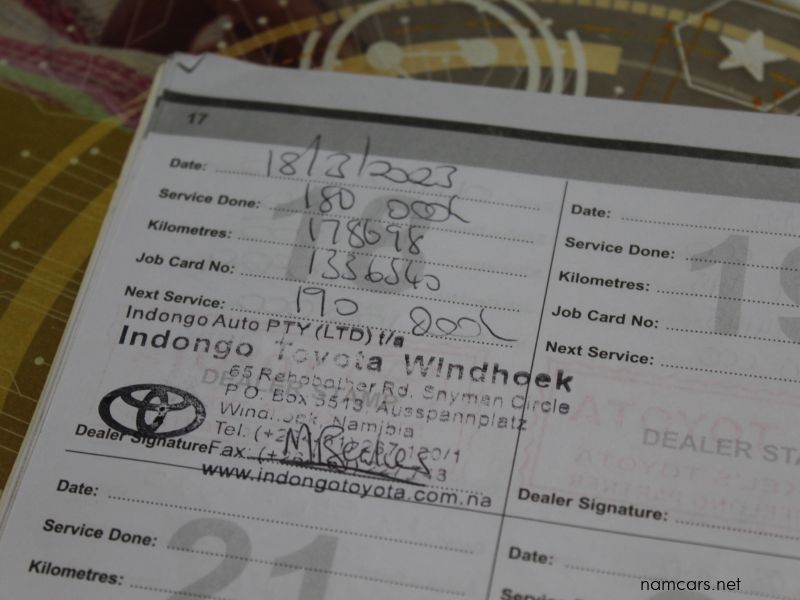 17
Date: 18/3/2023
Service Done: 180 000k
Kilometres: 178698
Job Card No: 1336540
Next Service: 190 000k
Indongo Auto PTY (LTD) t/a
Indongo Toyota Windhoek
65 Rehobother Rd, Snyman Circle
P.O. Box 3513, Ausspannplatz
Windhoek, Namibia
Tel: (+2
Dealer Signature
Fax: (+
www.indongotoyota.com.na
Date:
Service Done:
Kilometres:
21
Date:
Service Done:
Kilometres:
Job Card No:
Next Service:
19
DEALER STA
Dealer Signature:
Date:
Service Done:
namcars.net